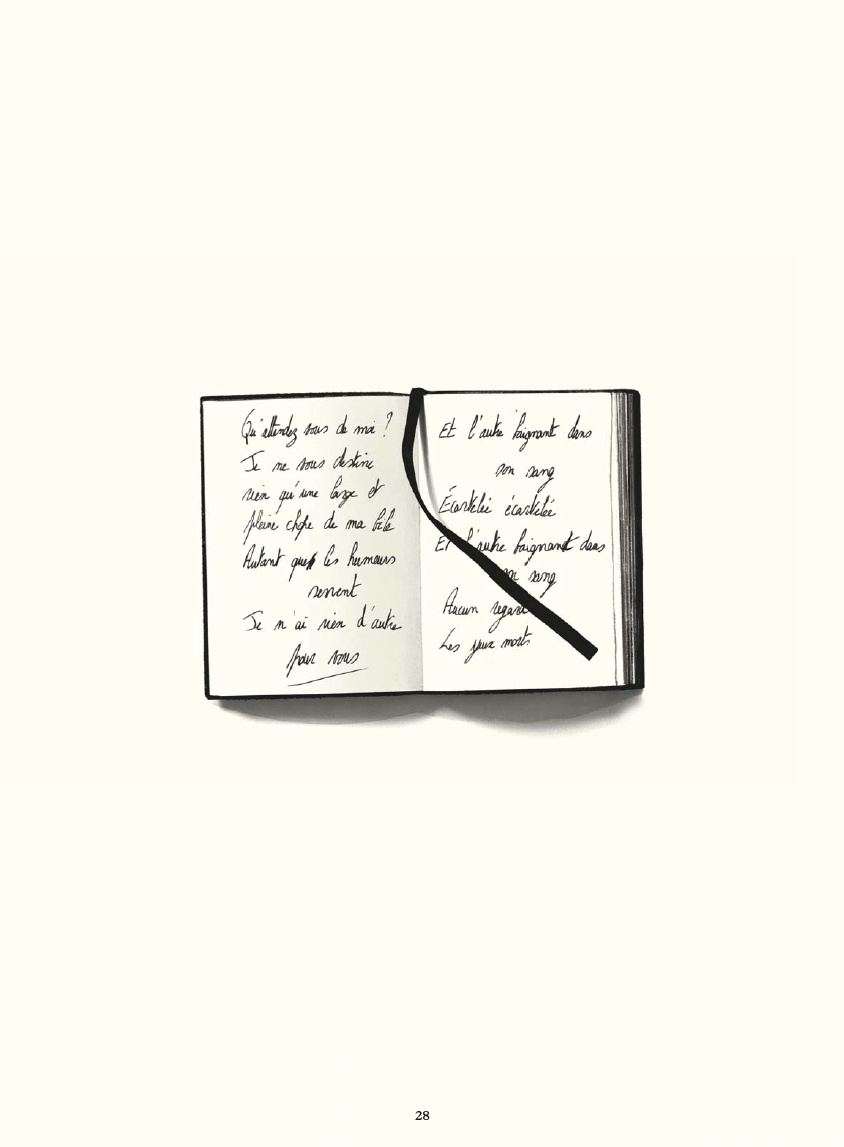 Qu'attendez vous de moi ?
Je ne vous destine
rien qu'une large et
pleine chope de ma bile
Autant que les humeurs
servent
Je n'ai rien d'autre
pour vous
Et l'autre baignant dans
son sang
Écartelée écartelée
Et l'autre baignant dans
son sang
Aucun regard
Les yeux morts
28